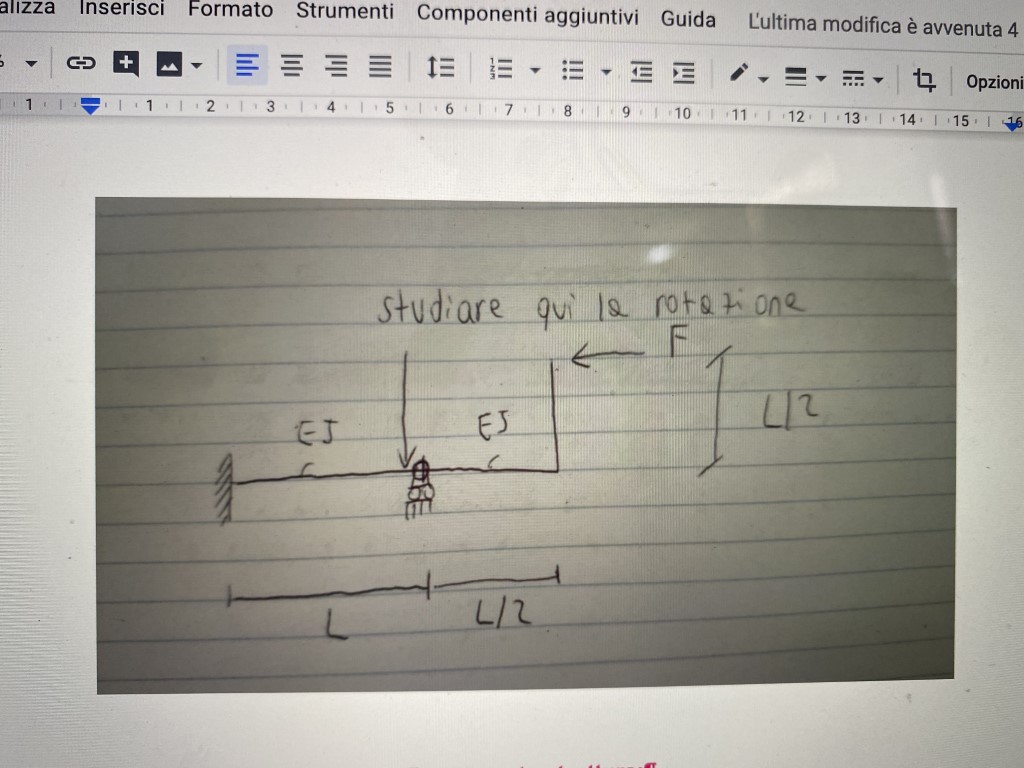 alizza Inserisci Formato Strumenti Componenti aggiuntivi Guida L'ultima modifica è avvenuta 4
Opzioni
1 1 2 3 4 5 6 7 8 9 10 11 12 13 14 15 16
studiare qui la rotazione
F
L/2
EJ EJ
L L/2